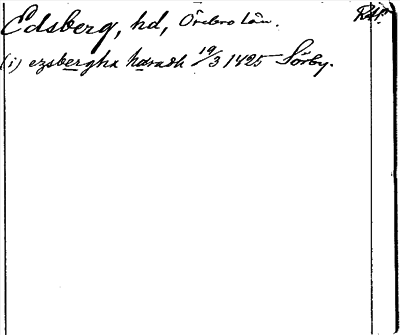 Edsberg, hd, Örebro län. RAp.
(i) ezsbergha haradh 19/3 1425 Sörby.